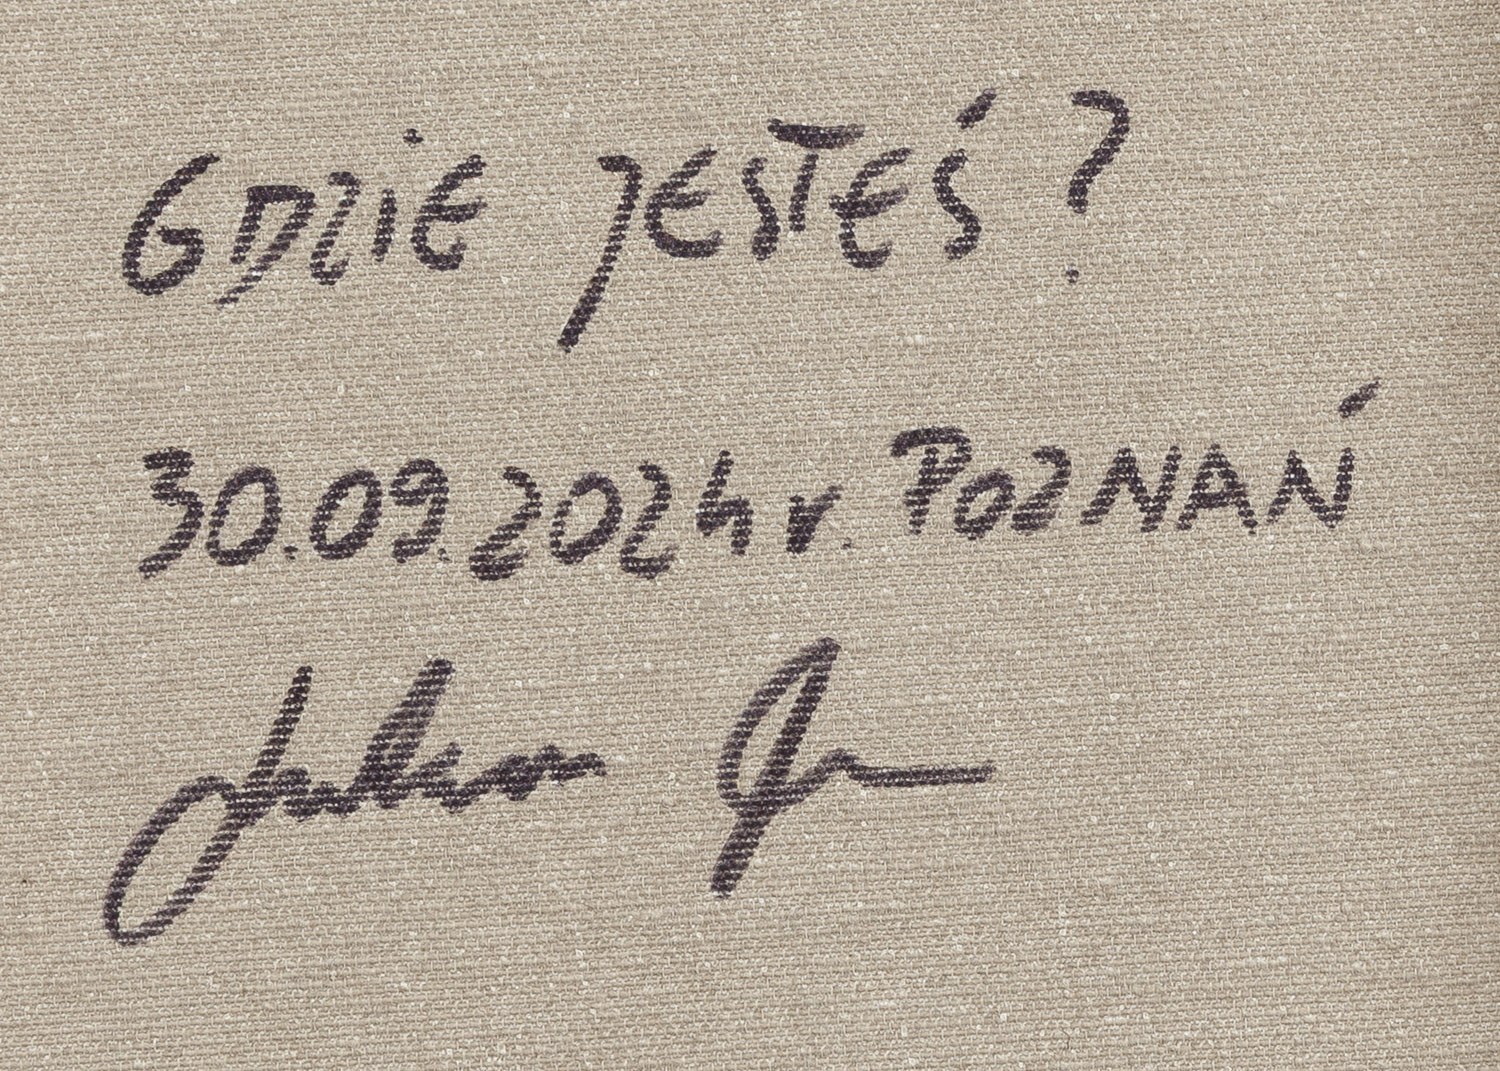 GDZIE JESTEŚ?
30.09.2024 r. POZNAŃ